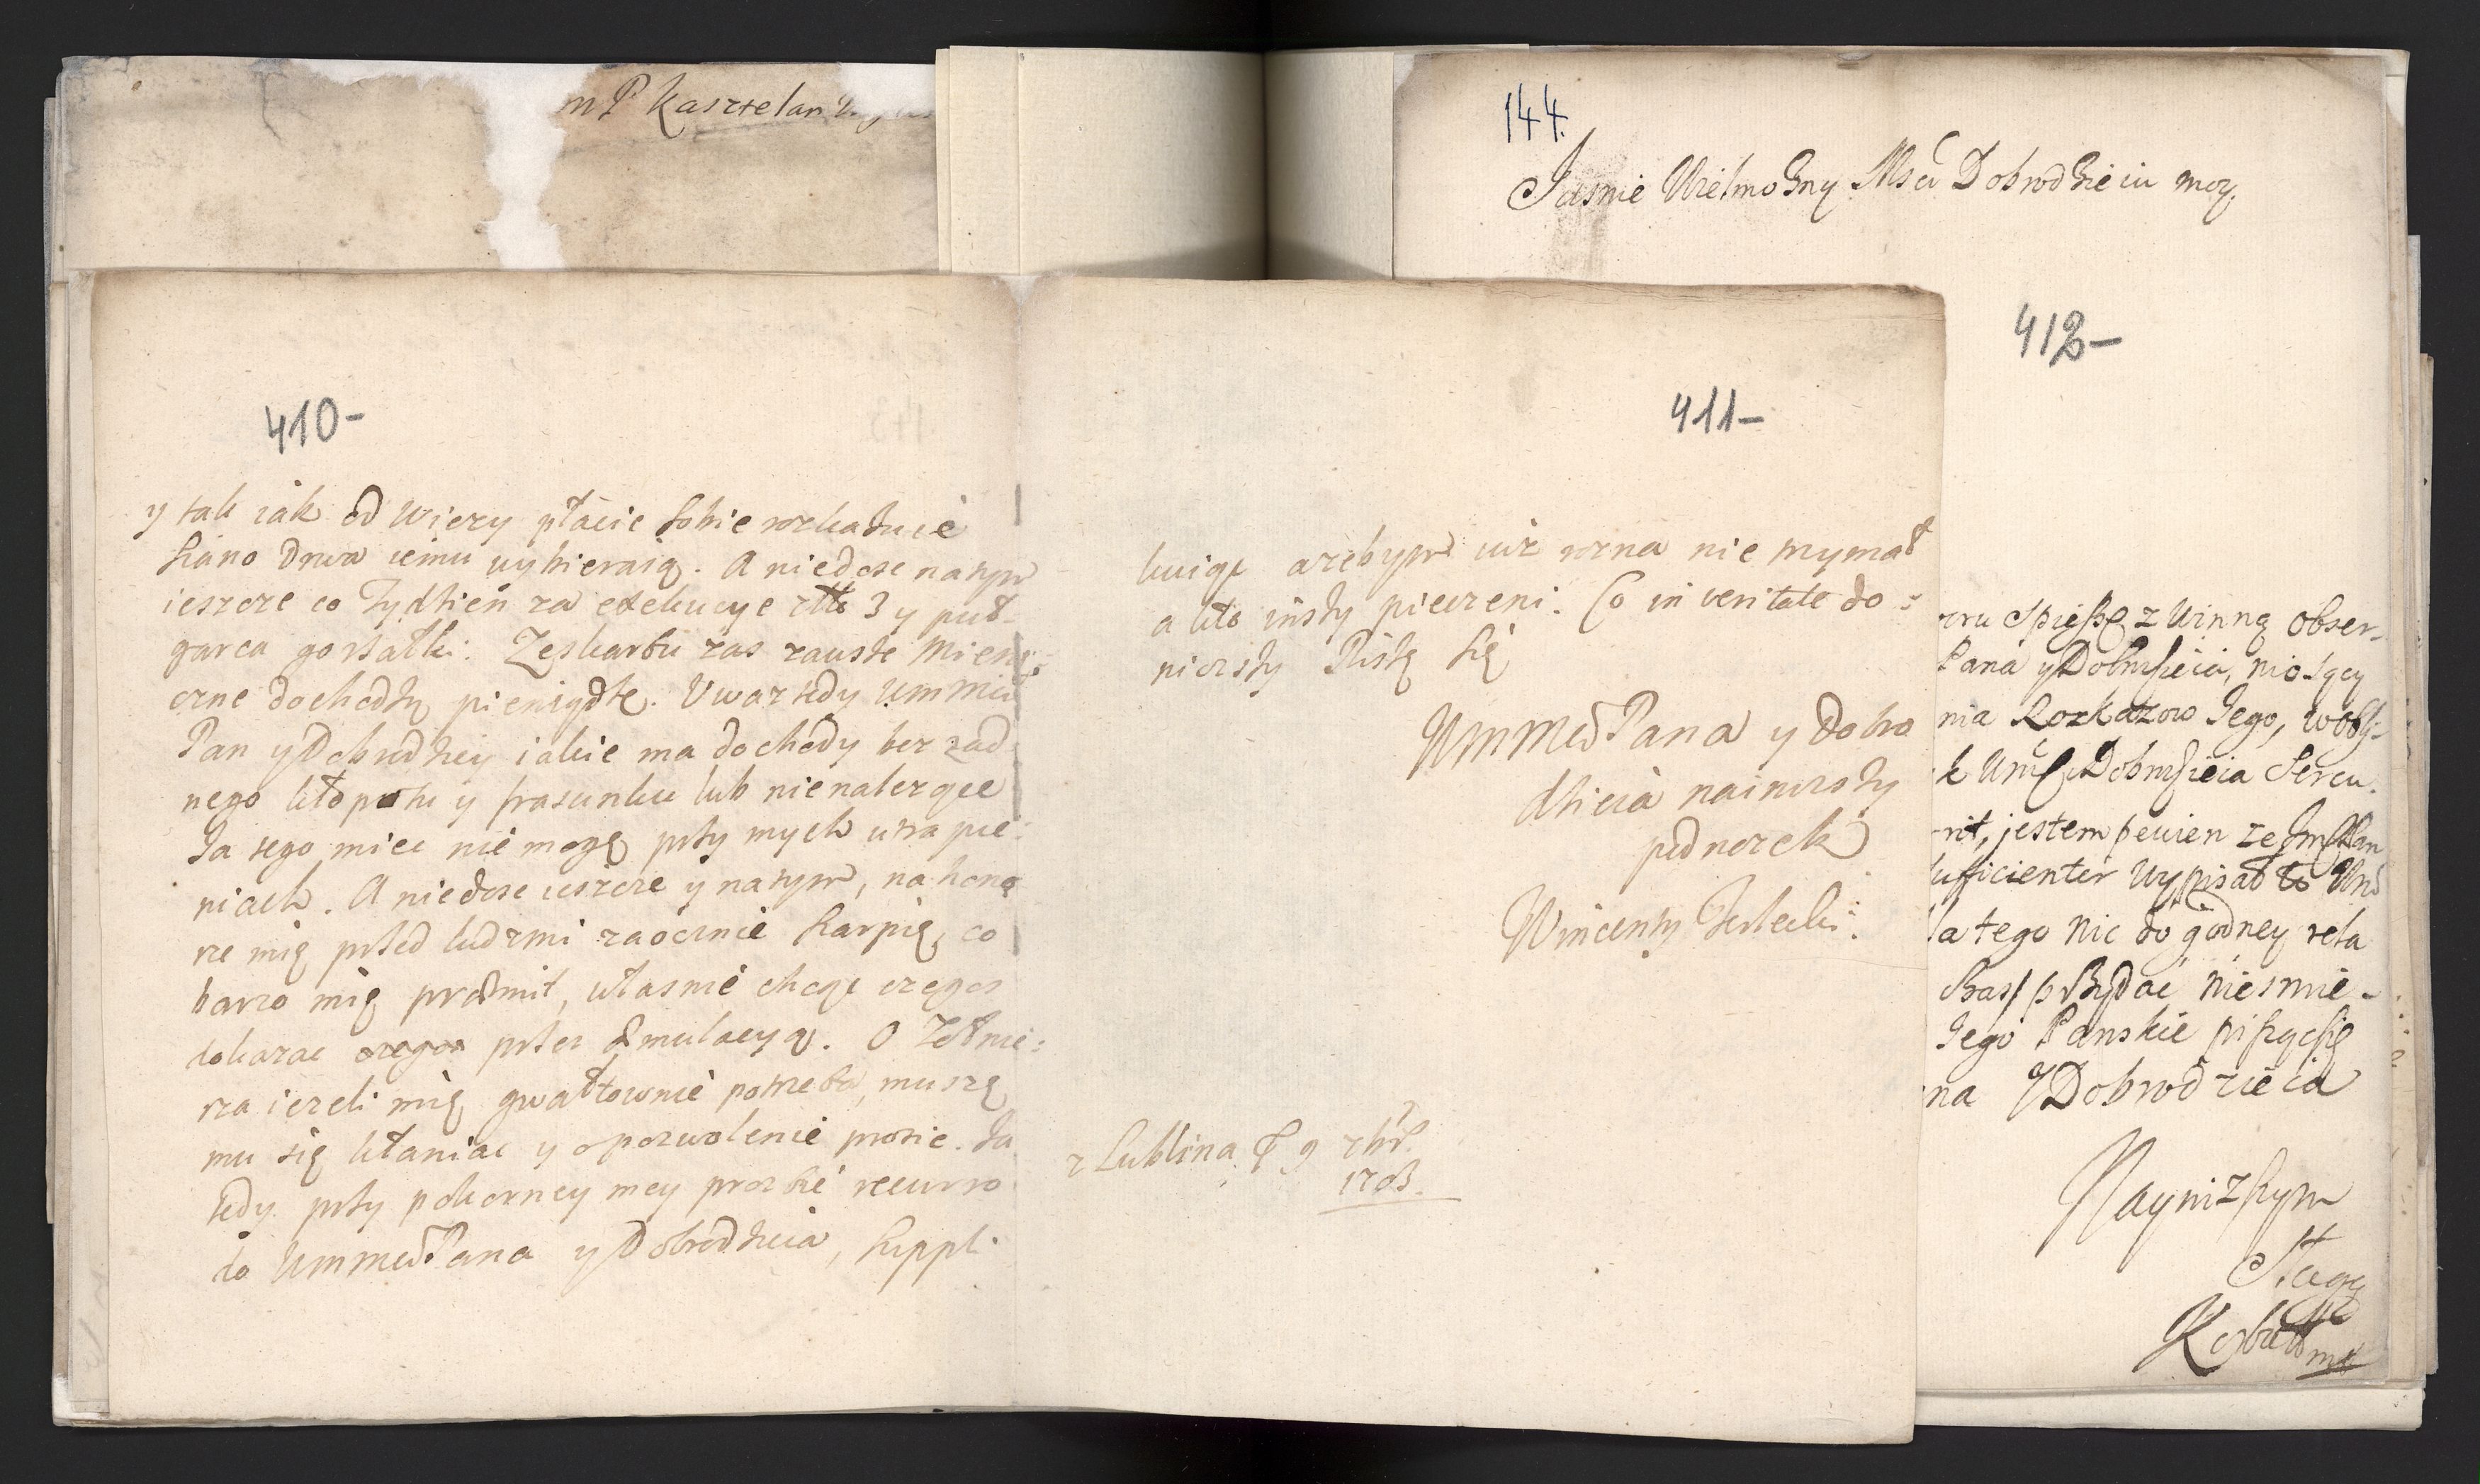 m P kasztelan
410-
y tak iak od Wiery płacic sobie rozkazuie
siano drwa iemu wybieraią. A niedosc natym
ieszcze co Tydzień za exekucye 3 y puł
garca gorzałki. Ze skarbu zas zawsze Miesię:
czne dochodzą pieniądze. Uwaz tedy UmMM
Pan y Dobrodziey iakie ma dochody bez zad
nego kłopotu y frasunku lub nienalezące
Ja tego miec nie mogę przy mych utrapie:
niach. A niedosc ieszcze y natym, na hono
rze mię przed ludzmi zaocznie szarpię, co
barzo mię własnie chcąc czegos
dokazac czegos przez Emulacyą. O Zołnie:
rza iezeli mię gwałtownie potrzeba, muszę
mu się kłaniac y o pozwolenie prosic. Ja
tedy przy pokorney mey prozbie recurro
do UmMMPana y Dobrodzieia, suppli
411-
kuiąc azebym iuz wzna nie trzymał
a kto inszy pieczeni. Co in veritate do :
niozszy Piszę się
UmMMPana y Dobro
dzieia nainizszy
podnozek
Wincenty Terlecki.
z Lublina 9
1703.
144.
Jasnie Wielmozny Msci Dobrodzieiu moy.
412-
spieszę z Winną obser-
Pana y Dobrodzieia, niosący
nia Rozkazow Jego, w obli-
Dobrodzieia Sercu.
jestem pewien ze
sufficienter Wypisał to
la tego nic do godney rela
przydac niesmie-
Jego Panskie piszącsię
na Y Dobrodzieia
Naynizszym
Sługą
Korbutt
mp